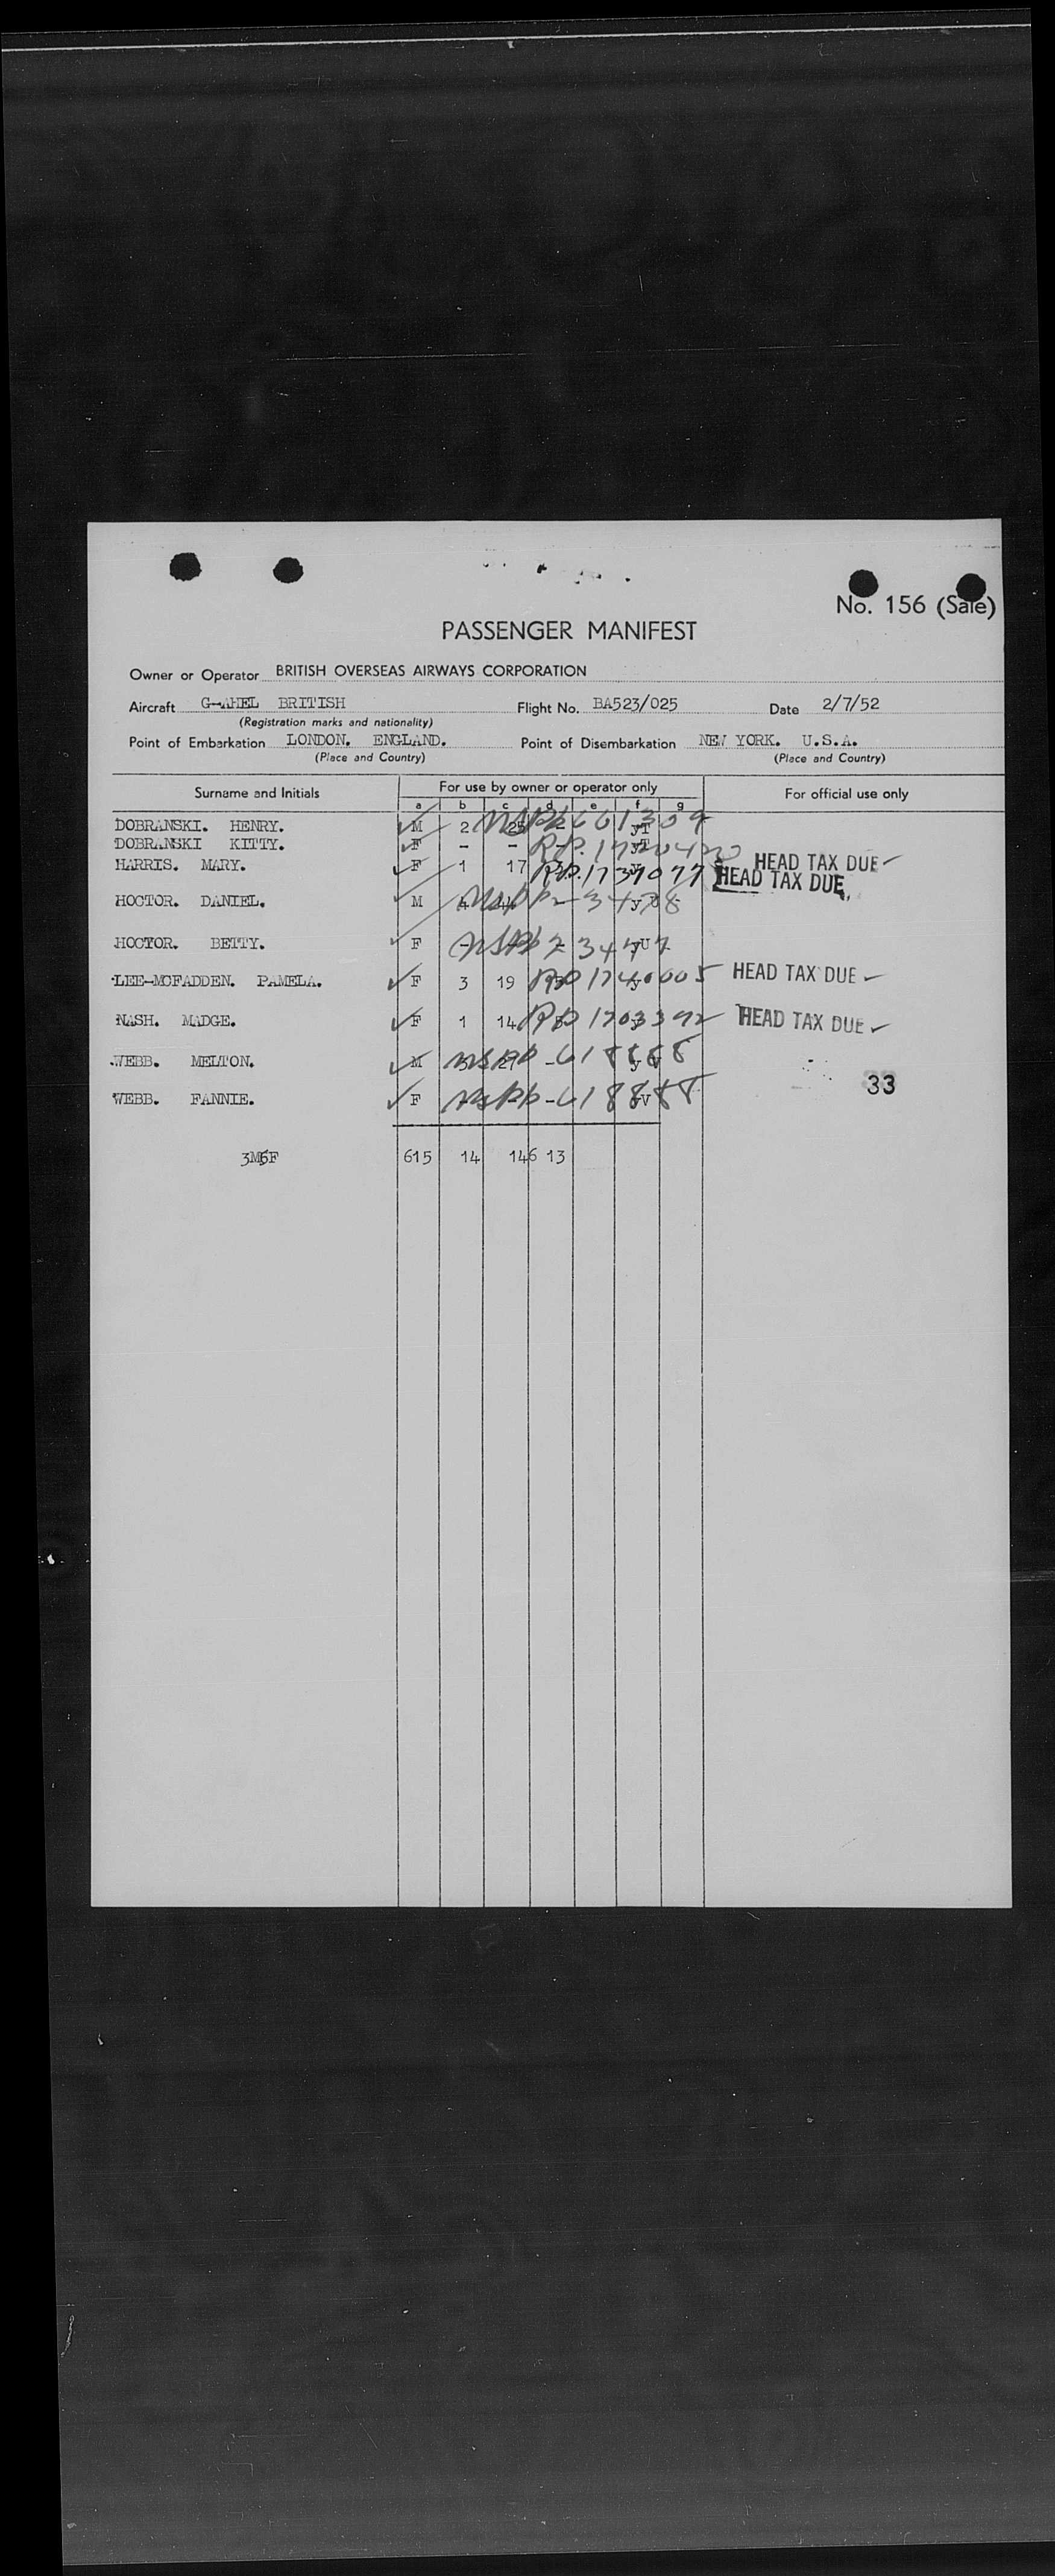 No. 156 (Sale)
PASSENGER MANIFEST
Owner or Operator BRITISH OVERSEAS AIRWAYS CORPORATION
Aircraft G-AHEL BRITISH Flight No. BA523/025 Date 2/7/52
(Registration marks and nationality)
Point of Embarkation LONDON. ENGLAND. Point of Disembarkation NEW YORK. U.S.A.
(Place and Country) (Place and Country)
Surname and Initials For use by owner or operator only For official use only
a b c d e f g
DOBRANSKI. HENRY. M 2 25
DOBRANSKI KITTY. F - - HEAD TAX DUE
HARRIS. MARY. F 1 17 RP.1737077 HEAD TAX DUE
HOCTOR. DANIEL. M
HOCTOR. BETTY. F
LEE-MCFADDEN. PAMELA. F 3 19 1740005 HEAD TAX DUE
NASH. MADGE. F 1 14 1703392 HEAD TAX DUE
WEBB. MELTON. M 618888
33
WEBB. FANNIE. F 618888
615 14 146 13